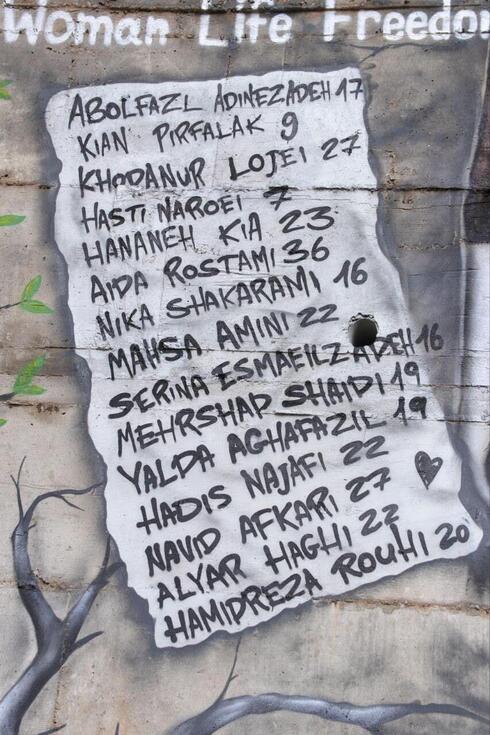 Woman Life Freedom
ABOLFAZL ADINEZADEH 17
KIAN PIRFALAK 9
KHODANUR LOJEI 27
HASTI NAROEI 7
HANANEH KIA 23
AIDA ROSTAMI 36
NIKA SHAKARAMI 16
MAHSA AMINI 22
SERINA ESMAEILZADEH 16
MEHRSHAD SHAIDI 19
YALDA AGHAFAZIL 19
HADIS NAJAFI 22
NAVID AFKARI 27
ALYAR HAGHI 22
HAMIDREZA ROUHI 20